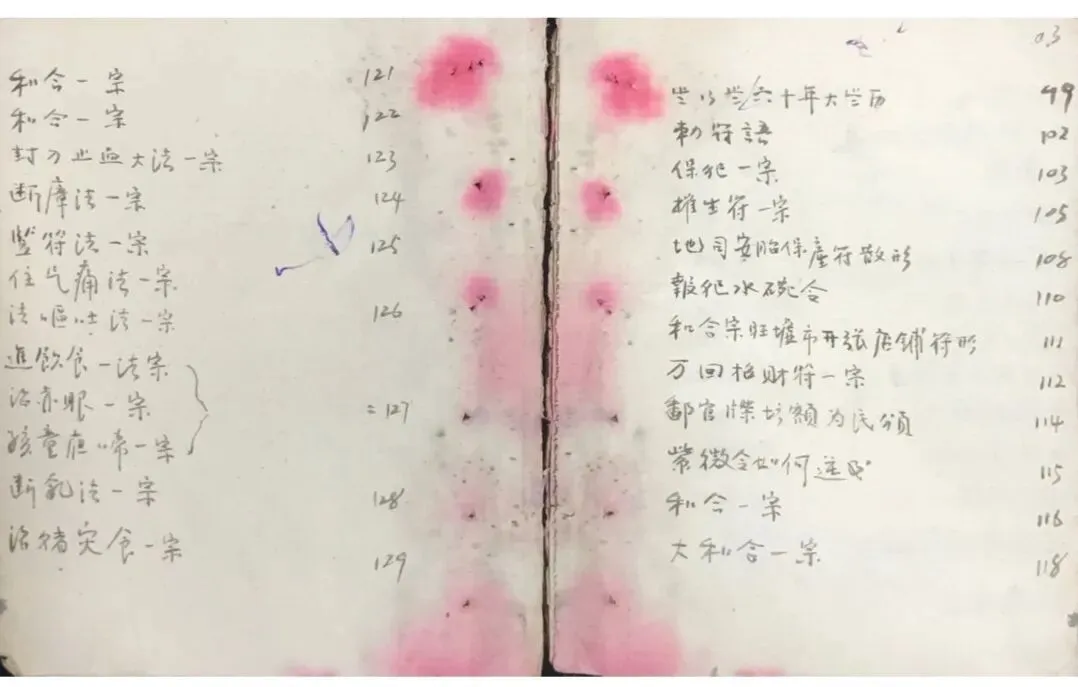 和合一宗 121
和合一宗 122
封刀止血大法一宗 123
断瘴法一宗 124
竖符法一宗 125
住气痛法一宗
法嘔吐法一宗 126
進飲食一法宗
治赤眼一宗 =127
孩童夜啼一宗
断乳法一宗 128
治猪灾食一宗 129
03
六十年大 99
勅符語 102
保犯一宗 103
推生符一宗 105
地司安胎保產符散形 108
報犯水碗合 110
和合宗旺墟市开張店鋪符形 111
万回招财符一宗 112
114
紫微令如何 115
和合一宗 116
大和合一宗 118